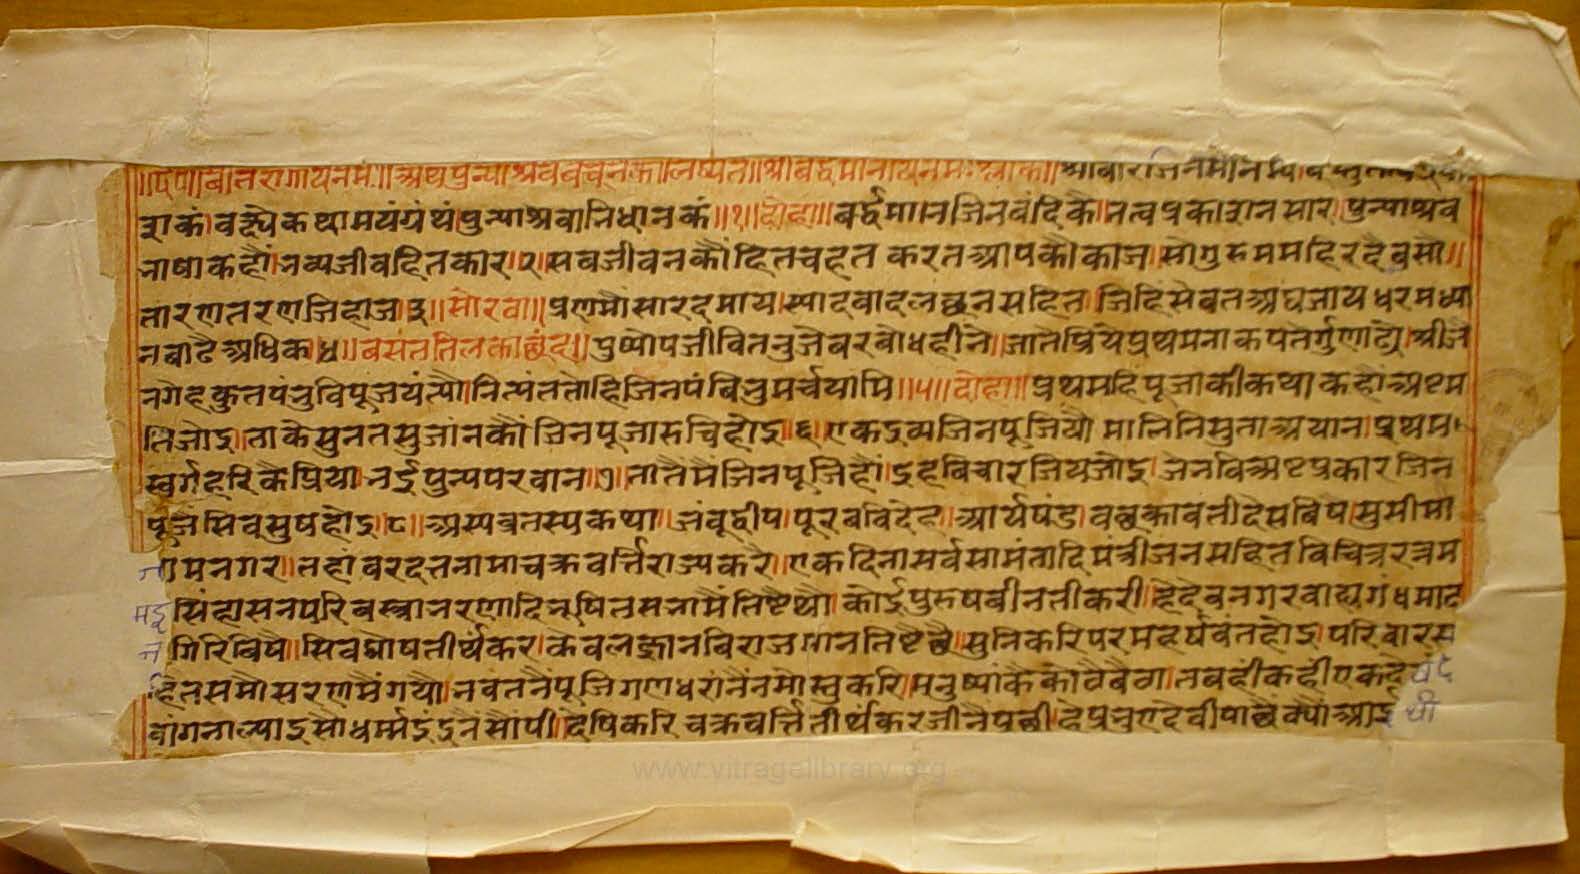 ॥र्द०॥बीतरागायनमः॥अथपुन्याश्रवबचनका॥लिष्यते॥श्रीबर्द्धमानायनमः॥श्लोक॥श्रीवीरंजिनमानम्य
शकं।वक्ष्येकथामयंग्रंथं।पुन्याश्रवानिधानकं॥१॥दोहा॥बर्द्धमानजिनबंदिकै।तत्वप्रकाशनसार।पुन्याश्रव
भाषाकहौं।भव्यजीवहितकार।२।सबजीवनकौंहितचहत करतआपकौकाज।सोगुरुममहिरदैबुसौ॥
तारणतरणजिहाज।३॥सोरठा॥प्रणमौंसारदमाय।स्यादवादलंछनसहित।जिहिसेवतअघजाय धरमध्या
नबाढैअधिक।४॥बसंततिलकाछंद॥पुष्पोपजीवितनुजेबरबोधहीने।जातेप्रियेप्रथमनाकपतेर्गुणाढ्ये।श्रीजै
नगेहकुतपंभुविपूजयंत्यौ।नित्यंततोहिजिनपंबिभुमर्चयामि॥५॥दोहा॥प्रथमहिपूजाकीकथा कहौंअष्टम
तिजोइ।ताकेसुनतसुजांनकौं जिनपूजारुचिहोइ॥६।एकइव्यजिनपूजियौ मालिनिसुताअयान।प्रथम
स्वर्गहरिकेप्रिया।भईपुन्यपरवान।७।तातैंमैंजिनपूजिहौं।इहबिचारजियजोइ।जेभविअष्टप्रकारजिन
पूजेसिवसुषहोइ।८।अस्यब्रतस्यकथा।जंबूद्वीप।पूरबविदेह।आर्यषंड।वछकावतीदेसबिषै।सुसीमा
नामनगर।तहांवरदतनामाचक्रवर्त्तिराज्यकरै।एकदिनासर्वसामंतादिमंत्रीजनसहितबिचित्ररत्नम
मइ सिंहासनपरिबस्त्राभरणादिभूषितसभामैंतिष्टैथौ।कोईपुरुषबीनतीकरी।हेदेवनगरबाह्यगंधमाद
न गिरिबिषै।सिवघोषतीर्थंकर।केवलज्ञानबिराजमानतिष्टैछै।सुनिकरिपरमहर्षवंतहोइ।परिवारस
हितसमोसरणमैंगयौ।भवतनैंपूजिगणधरांनैंनमोस्तुकरि।मनुष्यांकैकोठैबैठा।तबहीकहीएकद
वांगनाल्याइसोधर्म्मइंद्रनैंसोंपी।देषिकरिचक्रवर्त्तितीर्थंकरजीनैपूछी।हेप्रभुएदेवीपाछैंक्यौंआई थी
www.vitragelibrary.org